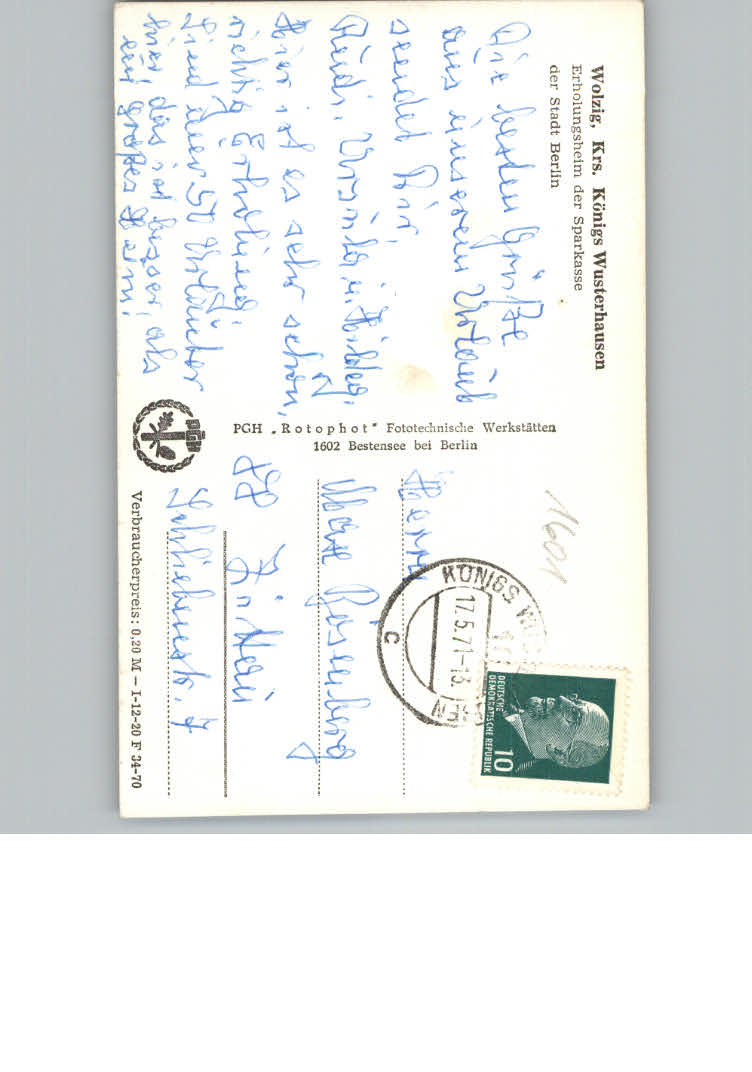 Wolzig, Krs. Königs Wusterhausen
Erholungsheim der Sparkasse
der Stadt Berlin
Die besten Grüße
aus unserem Urlaub
sendet Dir,
Rudi, Ursula u. Hildeg.
Hier ist es sehr schön,
richtig Erholung.
Sind nur 50 Urlauber
hier das ist besser als
ein großes Heim.
PGH „Rotophot“ Fototechnische Werkstätten
1602 Bestensee bei Berlin
PGH
1601
KÖNIGS WUST
17.5.71-13
C
DEUTSCHE
DEMOKRATISCHE REPUBLIK
10
Herrn
Max Rosenberg
Zittau
Schliebenstr. 7
Verbraucherpreis: 0,20 M — I-12-20 F 34-70